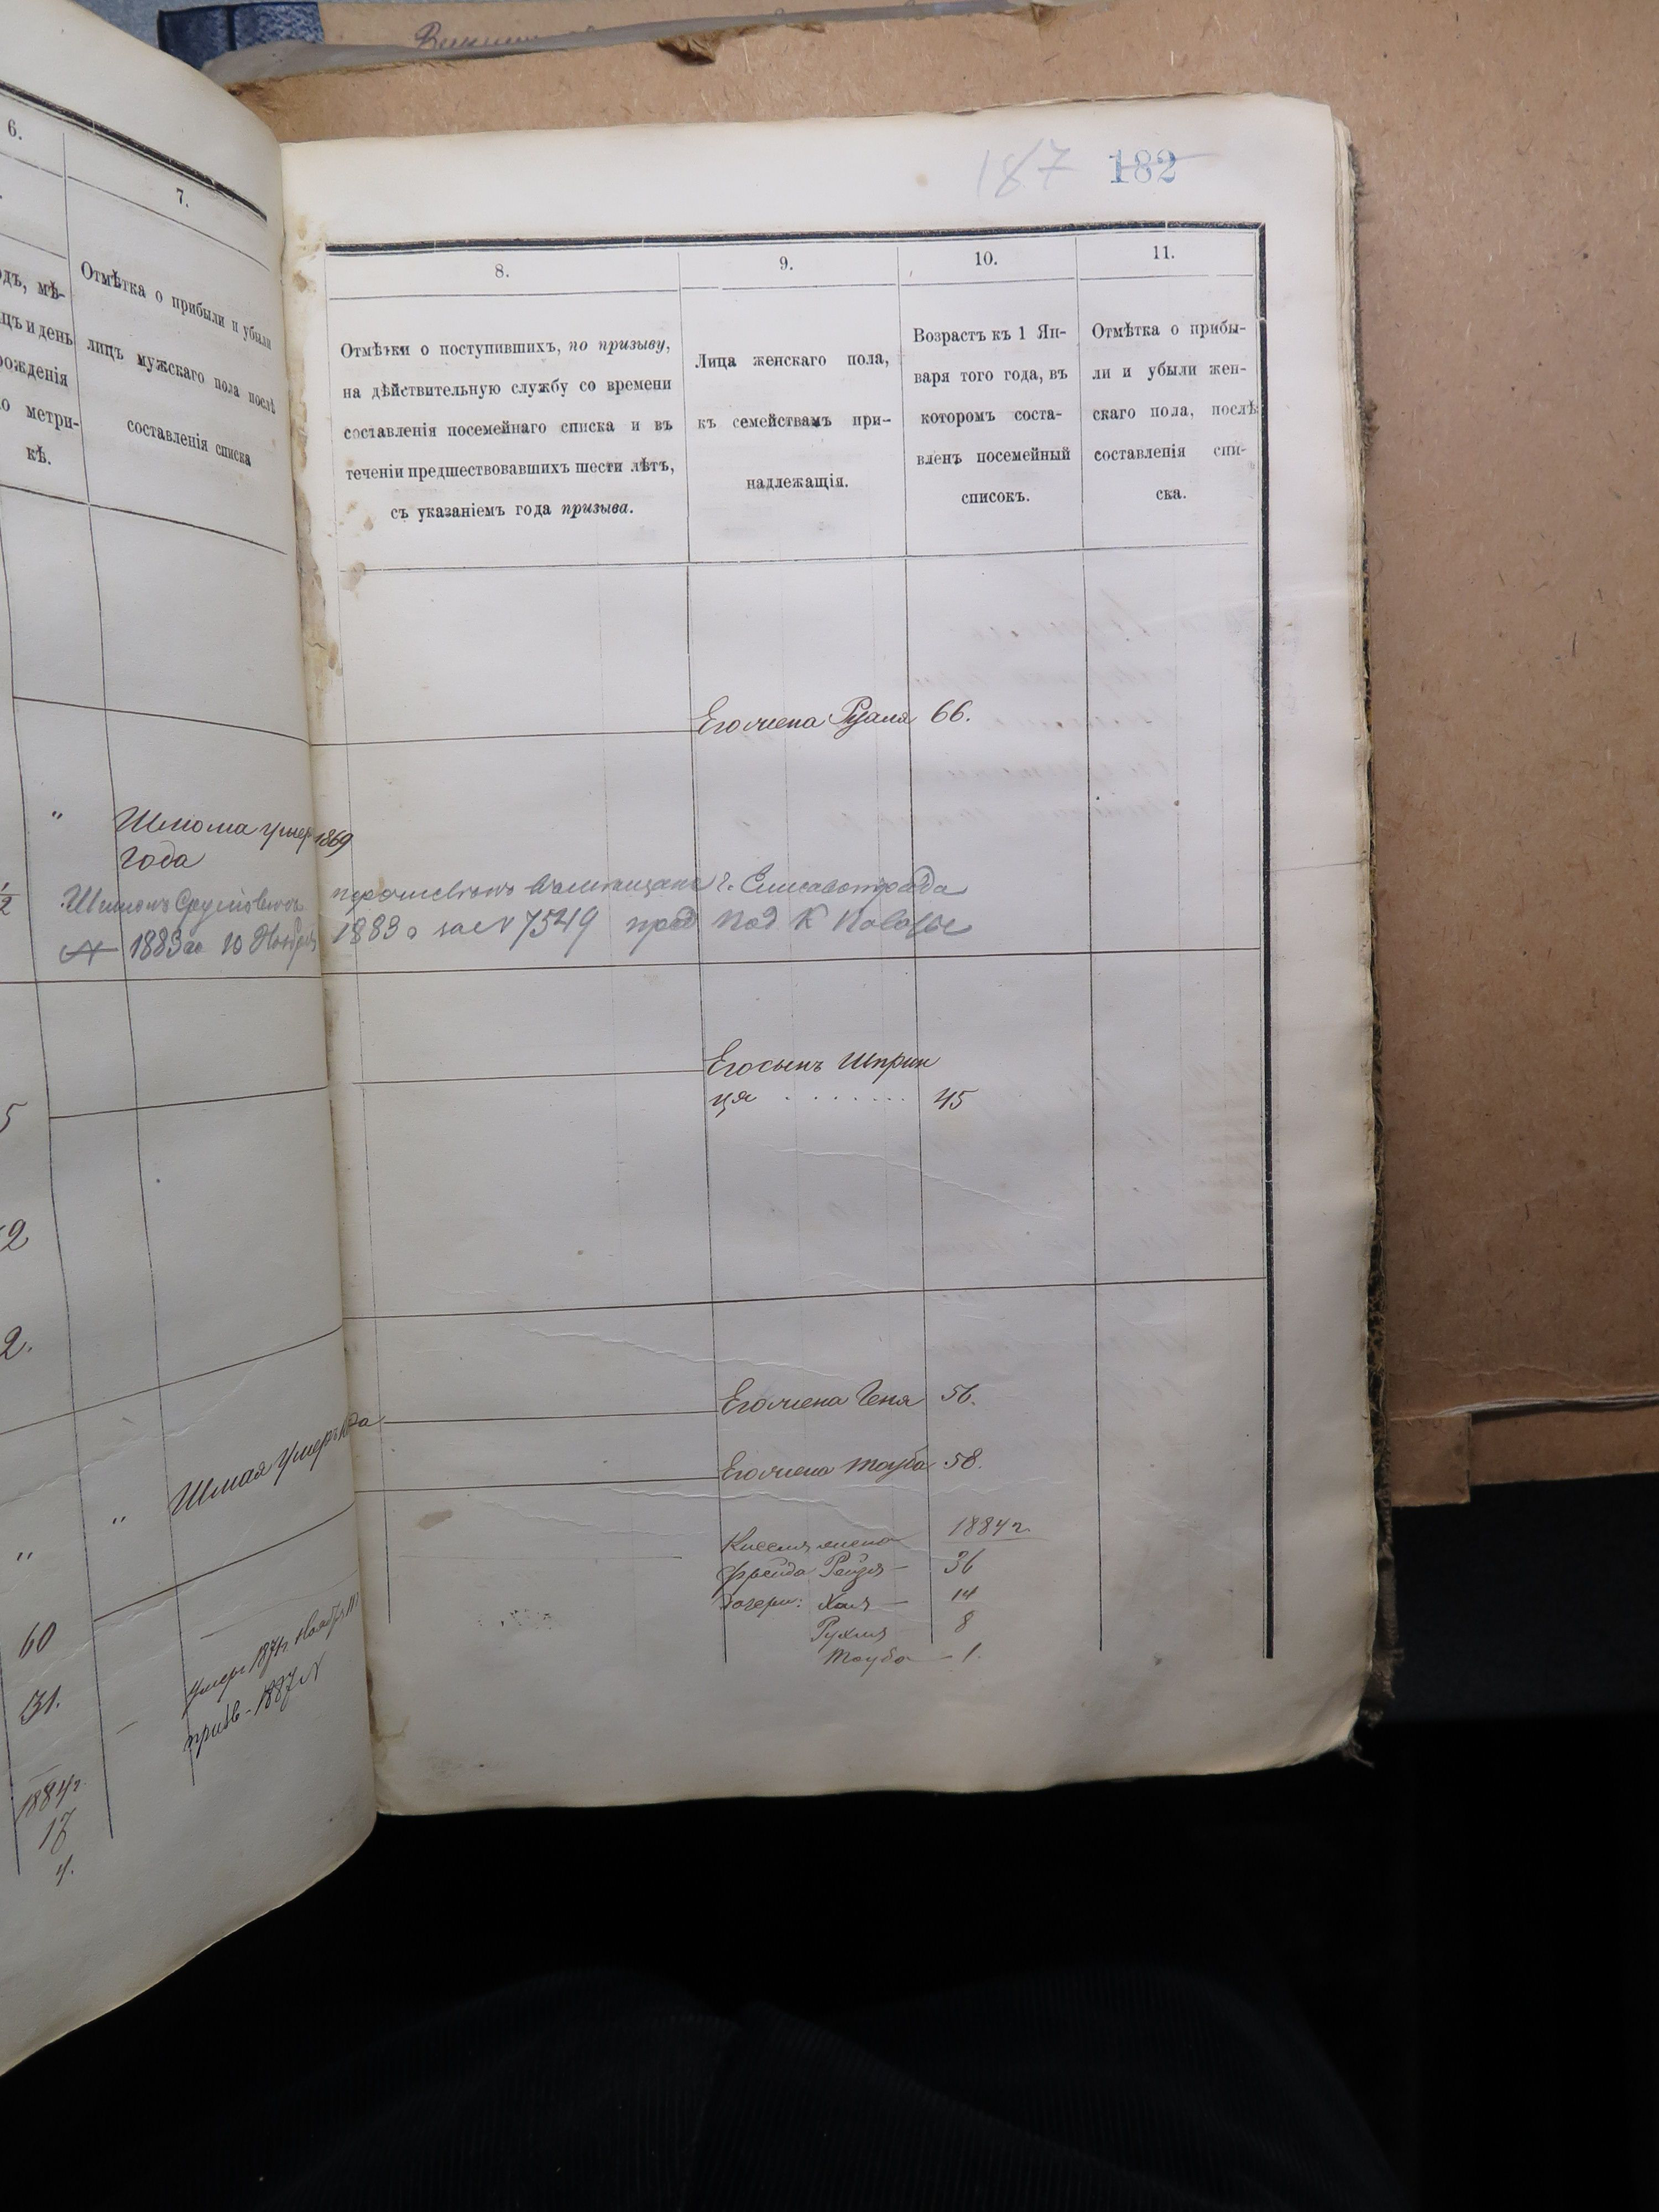 187 182
6.
7.
одъ, мѣ-
цъ и день
рожденія
о метри-
кѣ.
Отмѣтка о прибыли и убыли
лицъ мужскаго пола послѣ
составленія списка
8.
9.
10.
11.
Отмѣтки о поступившихъ, по призыву,
на дѣйствительную службу со времени
составленія посемейнаго списка и въ
теченіи предшествовавшихъ шести лѣтъ,
съ указаніемъ года призыва.
Лица женскаго пола,
къ семействамъ при-
надлежащія.
Возрастъ къ 1 Ян-
варя того года, въ
которомъ соста-
вленъ посемейный
списокъ.
Отмѣтка о прибы-
ли и убыли жен-
скаго пола, послѣ
составленія спи-
ска.
Его жена Рузля 66.
" Шлома умер 1869
года
1883 г. 10 Ноября 1883 за № 7549
Его сынъ Шприн
ця . . . . . . . 45
5
2
2.
Его жена Геня 56.
" Шмая умеръ
Его жена Тауба 58.
" 
60
31.
1884 г.
17
4.
жена 1884 г.
Фрейда Рейзя — 36
дочери: Хая — 14
Рухля 8
Тауба — 1.